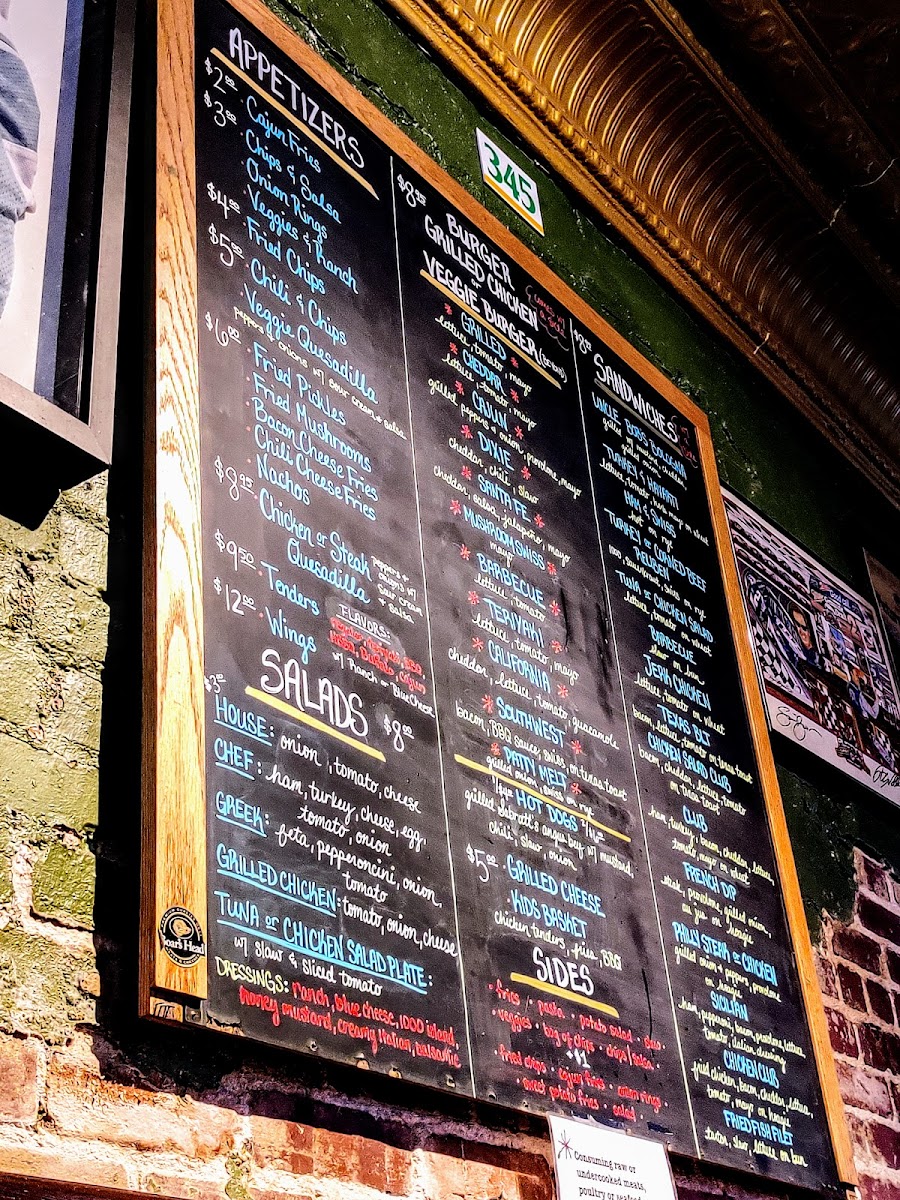 APPETIZERS
$2.00 · Cajun Fries
$3.00 · Chips & Salsa
· Onion Rings
· Veggies & Ranch
$4.00 · Fried Chips
$5.00 · Chili & Chips
· Veggie Quesadilla
peppers & onions w/ sour cream & salsa
$6.00 · Fried Pickles
· Fried Mushrooms
· Bacon Cheese Fries
· Chili Cheese Fries
· Nachos
$8.95 · Chicken or Steak
Quesadilla
peppers &
onions w/
sour cream
& salsa
$9.50 · Tenders
$12.00 · Wings
FLAVORS:
w/ Ranch or Blue Cheese
SALADS $8.00
HOUSE: onion, tomato, cheese
CHEF: ham, turkey, cheese, egg,
tomato, onion
GREEK: feta, pepperoncini, onion,
tomato
GRILLED CHICKEN: tomato, onion, cheese
TUNA or CHICKEN SALAD PLATE:
w/ slaw & sliced tomato
DRESSINGS: ranch, blue cheese, 1000 island,
honey mustard, creamy italian, balsamic
Boar's Head
BURGER
GRILLED CHICKEN
or
VEGGIE BURGER
* GRILLED *
lettuce, tomato, mayo
* CHEDDAR *
lettuce, tomato, mayo
* CAJUN *
grilled peppers & onion, provolone, mayo
* DIXIE *
cheddar, chili, slaw
* SANTA FE *
cheddar, salsa, jalapeño, mayo
* MUSHROOM SWISS *
mayo
* BARBECUE *
lettuce, tomato
* TERIYAKI *
lettuce, tomato, mayo
* CALIFORNIA *
cheddar, lettuce, tomato, guacamole
* SOUTHWEST *
bacon, BBQ sauce, swiss, on texas toast
* PATTY MELT *
grilled onion, swiss on rye
HOT DOGS
grilled Sabrett's angus beef w/ mustard,
chili, slaw, onion
$5.00 · GRILLED CHEESE
· KIDS BASKET
chicken tenders, fries, BBQ
SIDES
· fries · pasta · potato salad · slaw ·
· veggies · bag of chips · chips/salsa ·
+$1
· fried chips · cajun fries · onion rings ·
· sweet potato fries · salad ·
345
SANDWICHES
UNCLE BOB'S BOLOGNA
grilled w/ mustard, grilled onion, cheddar
TURKEY & HAVARTI
lettuce, tomato, mayo on wheat
HAM & SWISS
hot on rye
TURKEY or CORNED BEEF
REUBEN
sauerkraut, swiss on rye
TUNA or CHICKEN SALAD
lettuce, tomato on wheat
BARBECUE
slaw on bun
JERK CHICKEN
lettuce, tomato on wheat
TEXAS BLT
bacon, lettuce, tomato on texas toast
CHICKEN SALAD CLUB
bacon, cheddar, lettuce, tomato
on texas toast
CLUB
ham, turkey, bacon, cheddar, lettuce,
tomato, mayo on wheat
FRENCH DIP
steak, provolone, grilled onion,
au jus on hoagie
PHILLY STEAK or CHICKEN
grilled onion & peppers, provolone
on hoagie
SICILIAN
ham, pepperoni, bacon, provolone, lettuce,
tomato, italian dressing
CHICKEN CLUB
fried chicken, bacon, cheddar, lettuce,
tomato, mayo on hoagie
FRIED FISH FILET
tartar, slaw, lettuce on bun
Consuming raw or
undercooked meats,
poultry or seafood